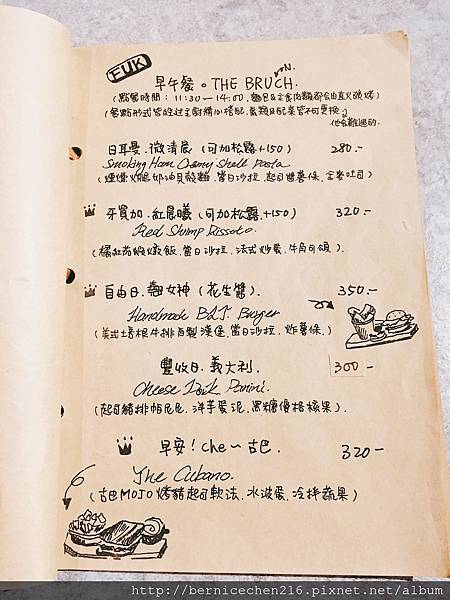 FUK
早午餐。THE BRUCH.
N.
(點餐時間：11:30－14:00, 麵包&主食肉類都会由直火碳烤)
(餐點形式皆經过主廚精心搭配, 餐類&配菜皆不可更換)
他会難過的.
日耳曼.微清晨 (可加松露+150) 280.-
Smoking Ham Creamy Shell Pasta
(煙燻火腿奶油貝殼麵, 當日沙拉, 起司醬薯條, 主餐吐司)
牙買加.紅晨曦 (可加松露.+150) 320.-
Red Shrimp Risotto.
(橘紅莴蝦燉飯, 當日沙拉, 法式炒蛋, 牛角可頌)
自由日.女神 (花生醬) 350.-
Handmade BLT Burger
(美式培根牛排自製漢堡, 當日沙拉, 炸薯條.)
豐收日.義大利. 300.-
Cheese Pork Panini.
(起司豬排帕尼尼, 洋芋蛋泥, 黑糖優格核果).
早安! Che～古巴. 320.-
The Cubano.
(古巴MOJO烤豬起司軟法, 水波蛋, 冷拌蔬果)
http://bernicechen216.pixnet.net/album